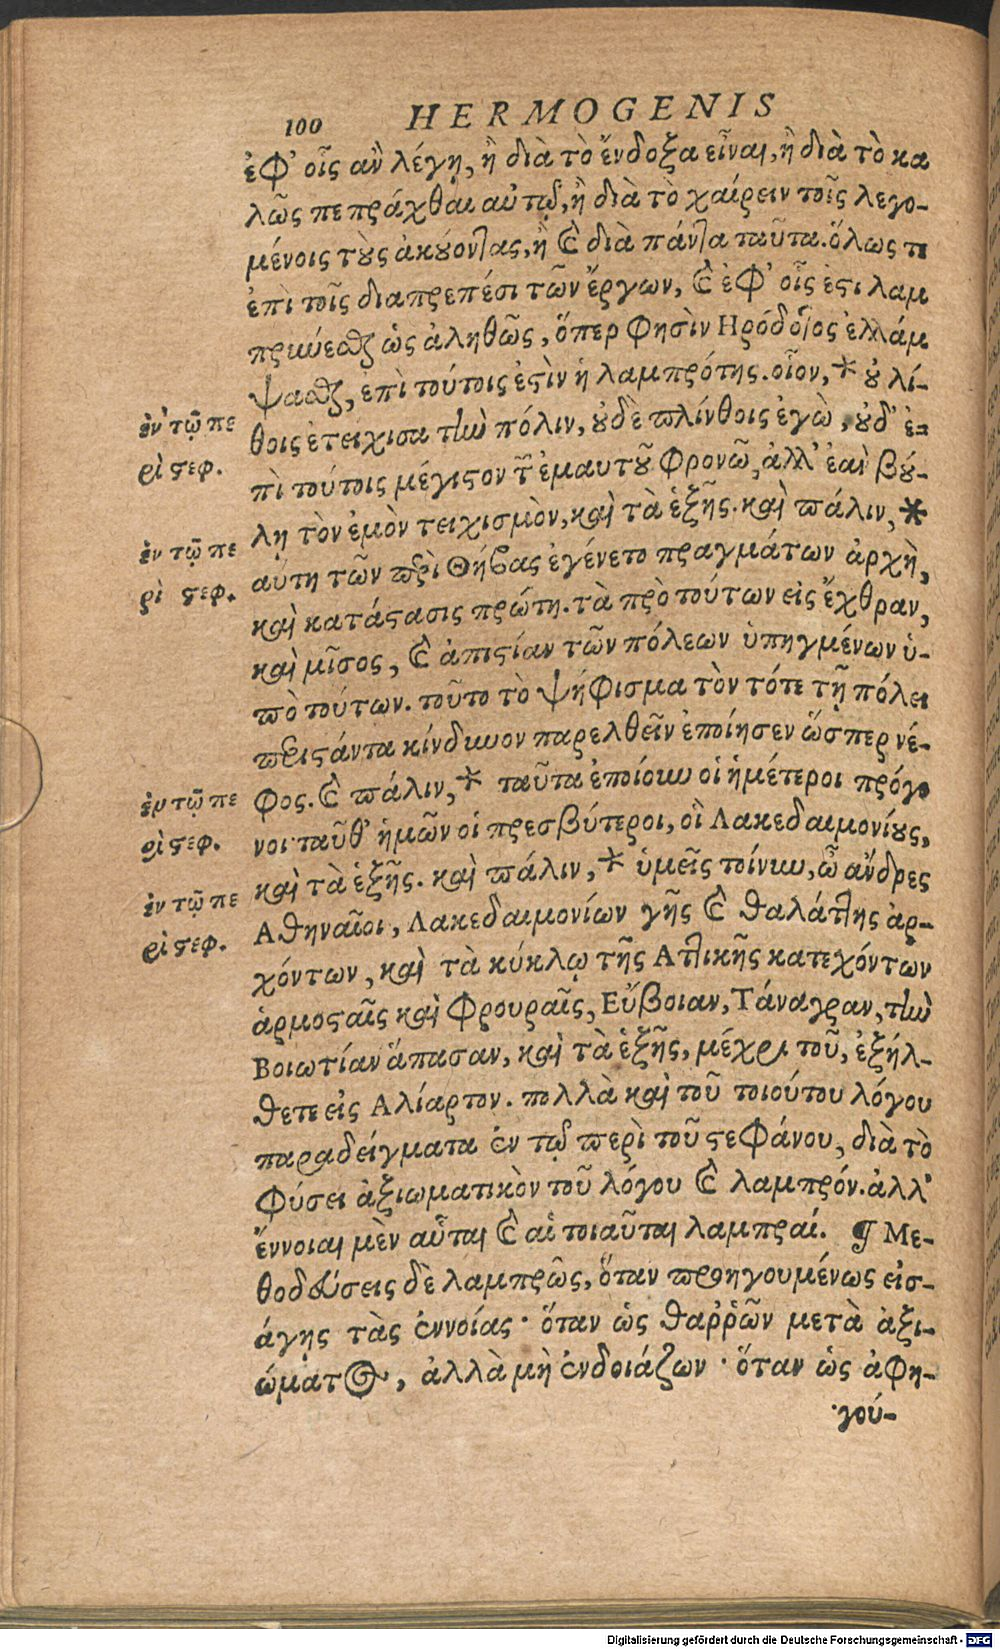 100 HERMOGENIS
ἐφ' οἷς ἂν λέγῃ, ἢ διὰ τὸ ἔνδοξα εἶναι, ἢ διὰ τὸ κα
λῶς πεπράχθαι αὐτῷ, ἢ διὰ τὸ χαίρειν τοῖς λεγο-
μένοις τοὺς ἀκούοντας, ἢ καὶ διὰ πάντα ταῦτα. ὅλως τε
ἐπὶ τοῖς διαπρεπέσι τῶν ἔργων, καὶ ἐφ' οἷς ἐστι λαμ
πρύνεσθαι ὡς ἀληθῶς, ὅπερ φησὶν Ηρόδοτος ἐλλάμ
ψασθαι, επὶ τούτοις ἐστὶν ἡ λαμπρότης. οἷον, * οὐ λί-
θοις ἐτείχισα τὴν πόλιν, οὐδὲ πλίνθοις ἐγὼ, οὐδ' ἐ-
πὶ τούτοις μέγιστον τῶν ἐμαυτοῦ φρονῶ, ἀλλ' ἐὰν βού-
λῃ τὸν ἐμὸν τειχισμὸν, καὶ τὰ ἑξῆς. καὶ πάλιν, *
αὕτη τῶν περὶ Θήβας ἐγένετο πραγμάτων ἀρχὴ,
καὶ κατάστασις πρώτη. τὰ πρὸ τούτων εἰς ἔχθραν,
καὶ μῖσος, καὶ ἀπιστίαν τῶν πόλεων ὑπηγμένων ὑ-
πὸ τούτων. τοῦτο τὸ ψήφισμα τὸν τότε τῇ πόλει
περιστάντα κίνδυνον παρελθεῖν ἐποίησεν ὥσπερ νέ-
φος. καὶ πάλιν, * ταῦτα ἐποίουν οἱ ἡμέτεροι πρόγο
νοι· ταῦθ' ἡμῶν οἱ πρεσβύτεροι, οἳ Λακεδαιμονίους,
καὶ τὰ ἑξῆς. καὶ πάλιν, * ὑμεῖς τοίνυν, ὦ ἄνδρες
Αθηναῖοι, Λακεδαιμονίων γῆς καὶ θαλάττης ἀρ-
χόντων, καὶ τὰ κύκλῳ τῆς Αττικῆς κατεχόντων
ἁρμοσταῖς καὶ φρουραῖς, Εὔβοιαν, Τάναγραν, τὴν
Βοιωτίαν ἅπασαν, καὶ τὰ ἑξῆς, μέχρι τοῦ, ἐξήλ-
θετε εἰς Αλίαρτον. πολλὰ καὶ τοῦ τοιούτου λόγου
παραδείγματα ἐν τῷ περὶ τοῦ στεφάνου, διὰ τὸ
φύσει ἀξιωματικὸν τοῦ λόγου καὶ λαμπρόν. ἀλλ'
ἔννοιαι μὲν αὗται καὶ αἱ τοιαῦται λαμπραί. ¶ Με-
θοδεύσεις δὲ λαμπρῶς, ὅταν προηγουμένως εἰσ-
άγῃς τὰς ἐννοίας· ὅταν ὡς θαῤῥῶν μετὰ ἀξι-
ώματος, ἀλλὰ μὴ ἐνδοιάζων· ὅταν ὡς ἀφη-
γού-
ἐν τῷ πε
ρὶ στεφ.
ἐν τῷ πε
ρὶ στεφ.
ἐν τῷ πε
ρὶ στεφ.
ἐν τῷ πε
ρὶ στεφ.
Digitalisierung gefördert durch die Deutsche Forschungsgemeinschaft - DFG